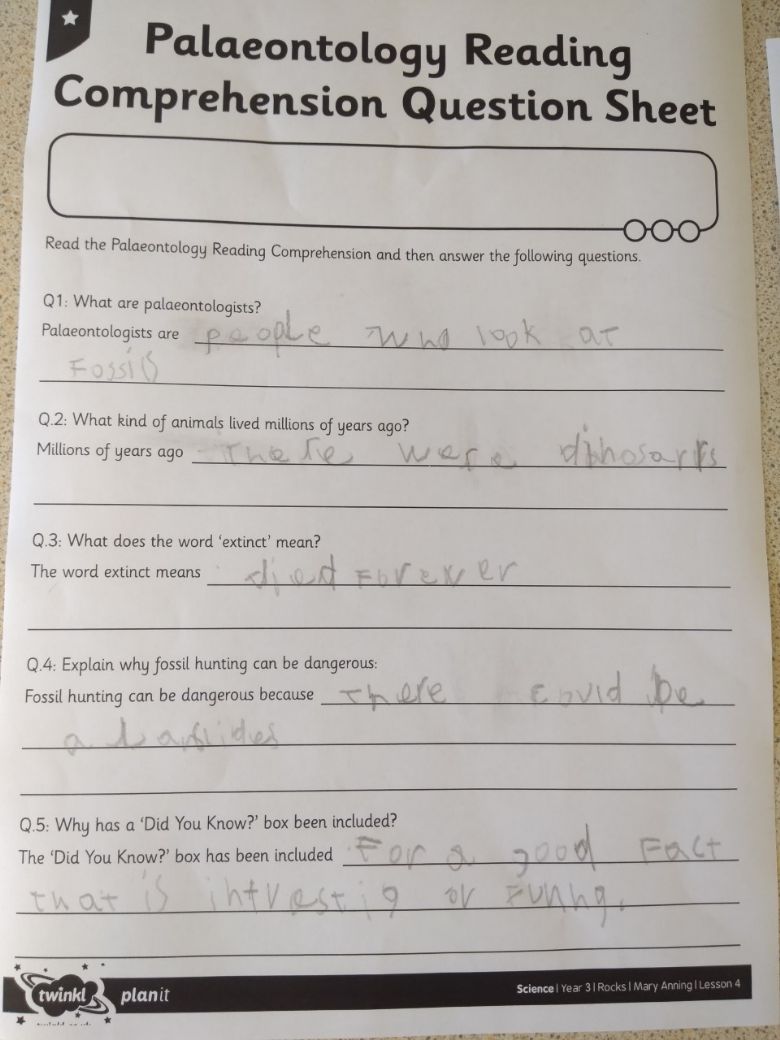 Palaeontology Reading
Comprehension Question Sheet
Read the Palaeontology Reading Comprehension and then answer the following questions.
Q1: What are palaeontologists?
Palaeontologists are people who look at
Fossils
Q.2: What kind of animals lived millions of years ago?
Millions of years ago there were dihosarrs
Q.3: What does the word 'extinct' mean?
The word extinct means died Forever
Q.4: Explain why fossil hunting can be dangerous:
Fossil hunting can be dangerous because there could be
a lanslides
Q.5: Why has a 'Did You Know?' box been included?
The 'Did You Know?' box has been included For a good Fact
that is intvestig or Funny.
twinkl planit
Science | Year 3 | Rocks | Mary Anning | Lesson 4